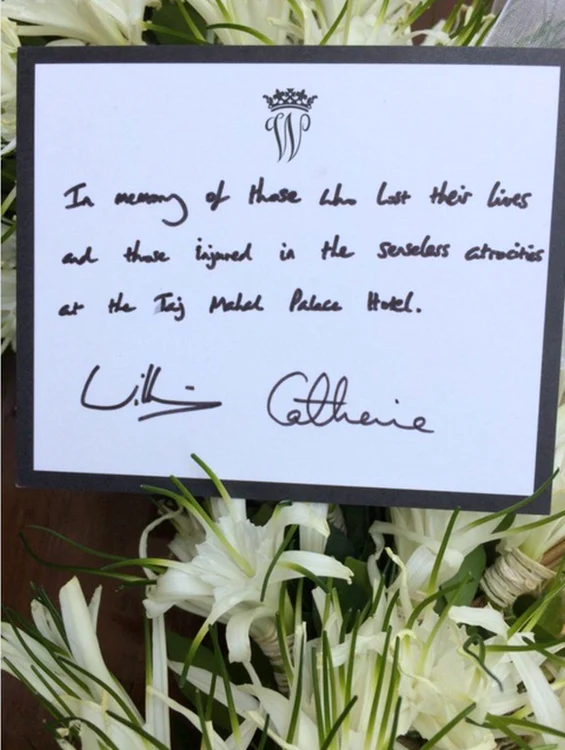 W
In memory of those who lost their lives
and those injured in the senseless atrocities
at the Taj Mahal Palace Hotel.
William Catherine